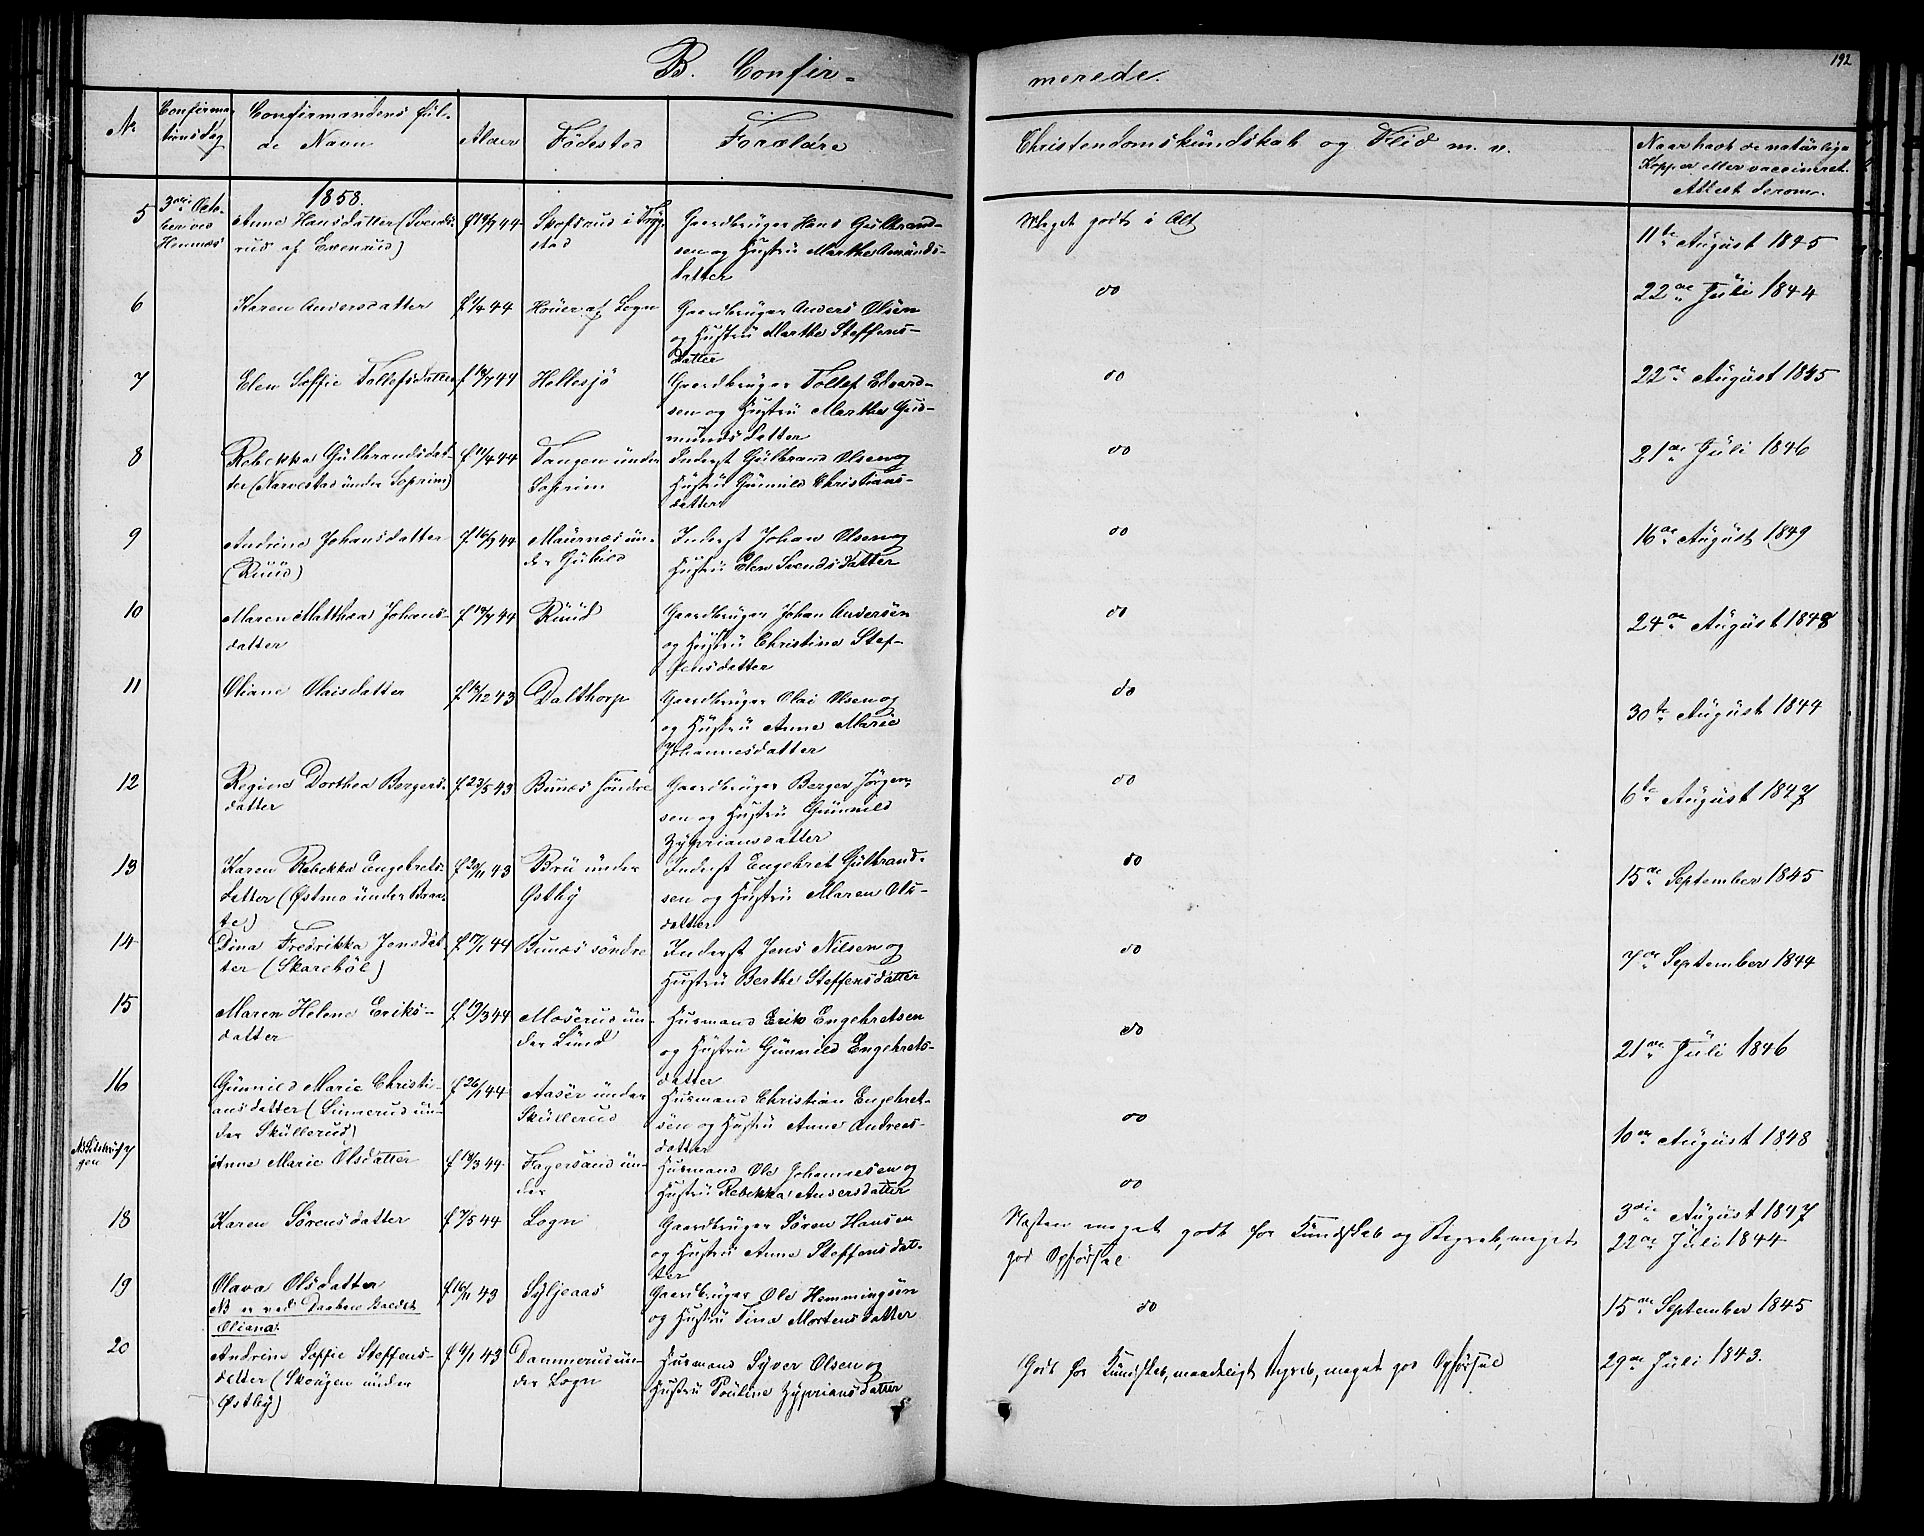 192
B. Confir-
merede.
No
Confirma-
tionsdag
Confirmandens ful-
de Navn
Alder
Fødested
Forældre
Christendomskundskab og Flid m. v.
Naar havt de naturlige
Kopper eller vaccineret.
Attest derom.
1858.
5
3die Octo-
ber ved
Hemnæs
Anne Hansdatter (Svends-
rud af Evenrud)
f 19/9 44
i Tryg-
stad
Gaardbruger Hans Gulbrand-
sen og Hustru Marthe Amunds-
datter
Meget godt i Alt
11te August 1845
6
Karen Andersdatter
f 1/4 44
Høuer af Logn
Gaardbruger Anders Olsen
og Hustru Marthe Steffens-
datter
do
22de Juli 1844
7
Elen Soffie Tollefsdatter
f 19/7 44
Hellesjø
Gaardbruger Tollef Edvard-
sen og Hustru Marthe Gud-
mundsdatter
do
22de August 1845
8
Rebekka Gulbrandsdat-
ter (Narvestad under Soprim)
f 11/4 44
Tangen under
Soprim
Inderst Gulbrand Olsen og
Hustru Gunnild Christians-
datter
do
21de Juli 1846
9
Andrine Johansdatter
(Ruud)
f 16/9 44
Maurnæs un-
der Gulied
Inderst Johan Olsen og
Hustru Elen Svendsdatter
do
16de August 1849
10
Maren Mathea Johans-
datter
f 19/7 44
Ruud
Gaardbruger Johan Andersen
og Hustru Christine Stef-
fensdatter
do
24de August 1848
11
Oliane Olaisdatter
f 18/12 43
Dalthorp
Gaardbruger Olai Olsen og
og Hustru Anne Marie
Johannesdatter
do
30te August 1844
12
Regine Dorthea Bergers-
datter
f 23/5 43
Bunæs søndre
Gaardbruger Berger Jørgen-
sen og Hustru Gunnild
Zypriansdatter
do
6te August 1847
13
Karen Rebekka Engebrets-
datter (Østmo under Braa-
te)
f 20/11 43
Bru under
Østby
Inderst Engebret Gulbrand-
sen og Hustru Maren Ols-
datter
do
15de September 1845
14
Dina Fredrikka Jensdat-
ter (Skarehøl)
f 17/1 44
Bunæs søndre
Inderst Jens Nilsen og
Hustru Berthe Steffensdatter
do
7de September 1844
15
Maren Helene Eriks-
datter
f 19/3 44
Moserud un-
der Lund
Husmand Erik Engebretsen
og Hustru Gunnild Engebrets-
datter
do
21de Juli 1846
16
Gunnild Marie Christi-
ansdatter (Sinnerud un-
der Skullerud)
f 26/1 44
Aaser under
Skullerud
Husmand Christian Engebret-
sen og Hustru Anne Andreas-
datter
do
10de August 1848
17
Anne Marie Olsdatter
f 19/3 44
Fagersand un-
der
Husmand Ole Johannesen og
Hustru Rebekka Andersdatter
do
3die August 1847
18
Karen Sørensdatter
f 7/5 44
Logn
Gaardbruger Søren Hansen
og Hustru Anne Steffensdat-
ter
Næsten meget godt for Kundskab og Begreb, meget
god Opførsel
22de Juli 1844
19
Olava Olsdatter
NB er ved Daaben kaldet
Oliana.
f 16/11 43
Syljeaas
Gaardbruger Ole Hemmingsen
og Hustru Tina Mortensdatter
do
15de September 1845
20
Andrine Soffie Steffens-
datter (Skougen under
Østby)
f 9/1 43
Dammerud un-
der Logn
Husmand Syver Olsen og
Hustru Pouline Zypriansdatter
Godt for Kundskab, maadeligt Begreb, meget god Opførsel
29de Juli 1843.